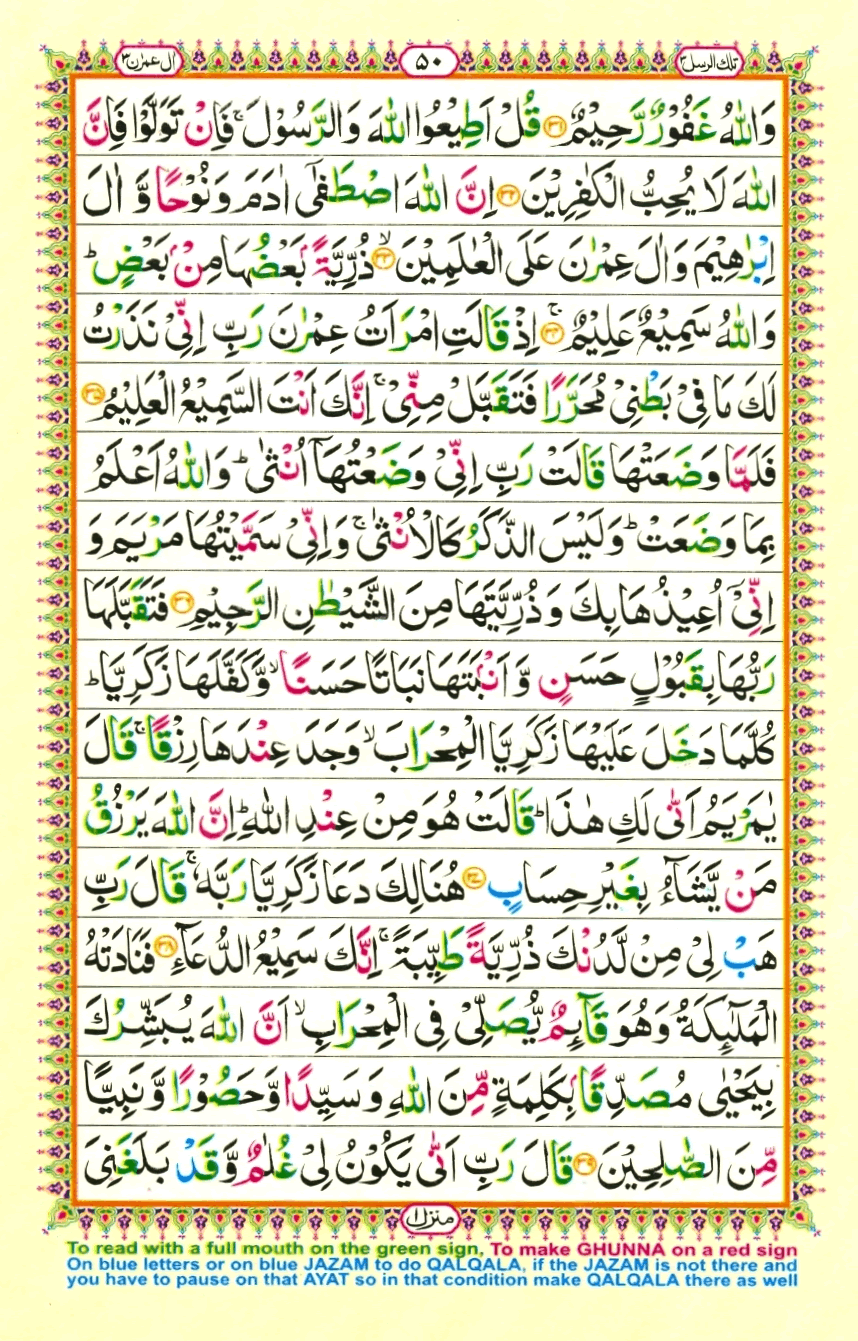 تلك الرسل ٣ ۵۰ ال عمرٰن ٣
وَاللّٰهُ غَفُوْرٌ رَّحِيْمٌ ﴿۳۱﴾ قُلْ اَطِيْعُوا اللّٰهَ وَالرَّسُوْلَ ۚ فَاِنْ تَوَلَّوْا فَاِنَّ
اللّٰهَ لَا يُحِبُّ الْكٰفِرِيْنَ ﴿۳۲﴾ اِنَّ اللّٰهَ اصْطَفٰۤى اٰدَمَ وَنُوْحًا وَّ اٰلَ
اِبْرٰهِيْمَ وَاٰلَ عِمْرٰنَ عَلَى الْعٰلَمِيْنَ ﴿۳۳﴾ ۙ ذُرِّيَّةًۢ بَعْضُهَا مِنْۢ بَعْضٍ ؕ
وَاللّٰهُ سَمِيْعٌ عَلِيْمٌ ﴿۳۴﴾ ۚ اِذْ قَالَتِ امْرَاَتُ عِمْرٰنَ رَبِّ اِنِّيْ نَذَرْتُ
لَكَ مَا فِيْ بَطْنِيْ مُحَرَّرًا فَتَقَبَّلْ مِنِّيْ ۚ اِنَّكَ اَنْتَ السَّمِيْعُ الْعَلِيْمُ ﴿۳۵﴾
فَلَمَّا وَضَعَتْهَا قَالَتْ رَبِّ اِنِّيْ وَضَعْتُهَاۤ اُنْثٰى ؕ وَاللّٰهُ اَعْلَمُ
بِمَا وَضَعَتْ ؕ وَلَيْسَ الذَّكَرُ كَالْاُنْثٰى ۚ وَاِنِّيْ سَمَّيْتُهَا مَرْيَمَ وَ
اِنِّيْۤ اُعِيْذُهَا بِكَ وَ ذُرِّيَّتَهَا مِنَ الشَّيْطٰنِ الرَّجِيْمِ ﴿۳۶﴾ فَتَقَبَّلَهَا
رَبُّهَا بِقَبُوْلٍ حَسَنٍ وَّ اَنْۢبَتَهَا نَبَاتًا حَسَنًا ۙ وَّكَفَّلَهَا زَكَرِيَّا ؕ
كُلَّمَا دَخَلَ عَلَيْهَا زَكَرِيَّا الْمِحْرَابَ ۙ وَجَدَ عِنْدَهَا رِزْقًا ۚ قَالَ
يٰمَرْيَمُ اَنّٰى لَكِ هٰذَا ؕ قَالَتْ هُوَ مِنْ عِنْدِ اللّٰهِ ؕ اِنَّ اللّٰهَ يَرْزُقُ
مَنْ يَّشَآءُ بِغَيْرِ حِسَابٍ ﴿۳۷﴾ هُنَالِكَ دَعَا زَكَرِيَّا رَبَّهٗ ۚ قَالَ رَبِّ
هَبْ لِيْ مِنْ لَّدُنْكَ ذُرِّيَّةً طَيِّبَةً ۚ اِنَّكَ سَمِيْعُ الدُّعَآءِ ﴿۳۸﴾ فَنَادَتْهُ
الْمَلٰٓئِكَةُ وَهُوَ قَآئِمٌ يُّصَلِّيْ فِي الْمِحْرَابِ ۙ اَنَّ اللّٰهَ يُبَشِّرُكَ
بِيَحْيٰى مُصَدِّقًاۢ بِكَلِمَةٍ مِّنَ اللّٰهِ وَ سَيِّدًا وَّحَصُوْرًا وَّ نَبِيًّا
مِّنَ الصّٰلِحِيْنَ ﴿۳۹﴾ قَالَ رَبِّ اَنّٰى يَكُوْنُ لِيْ غُلٰمٌ وَّقَدْ بَلَغَنِيَ
منزل ۱
To read with a full mouth on the green sign, To make GHUNNA on a red sign
On blue letters or on blue JAZAM to do QALQALA, if the JAZAM is not there and
you have to pause on that AYAT so in that condition make QALQALA there as well